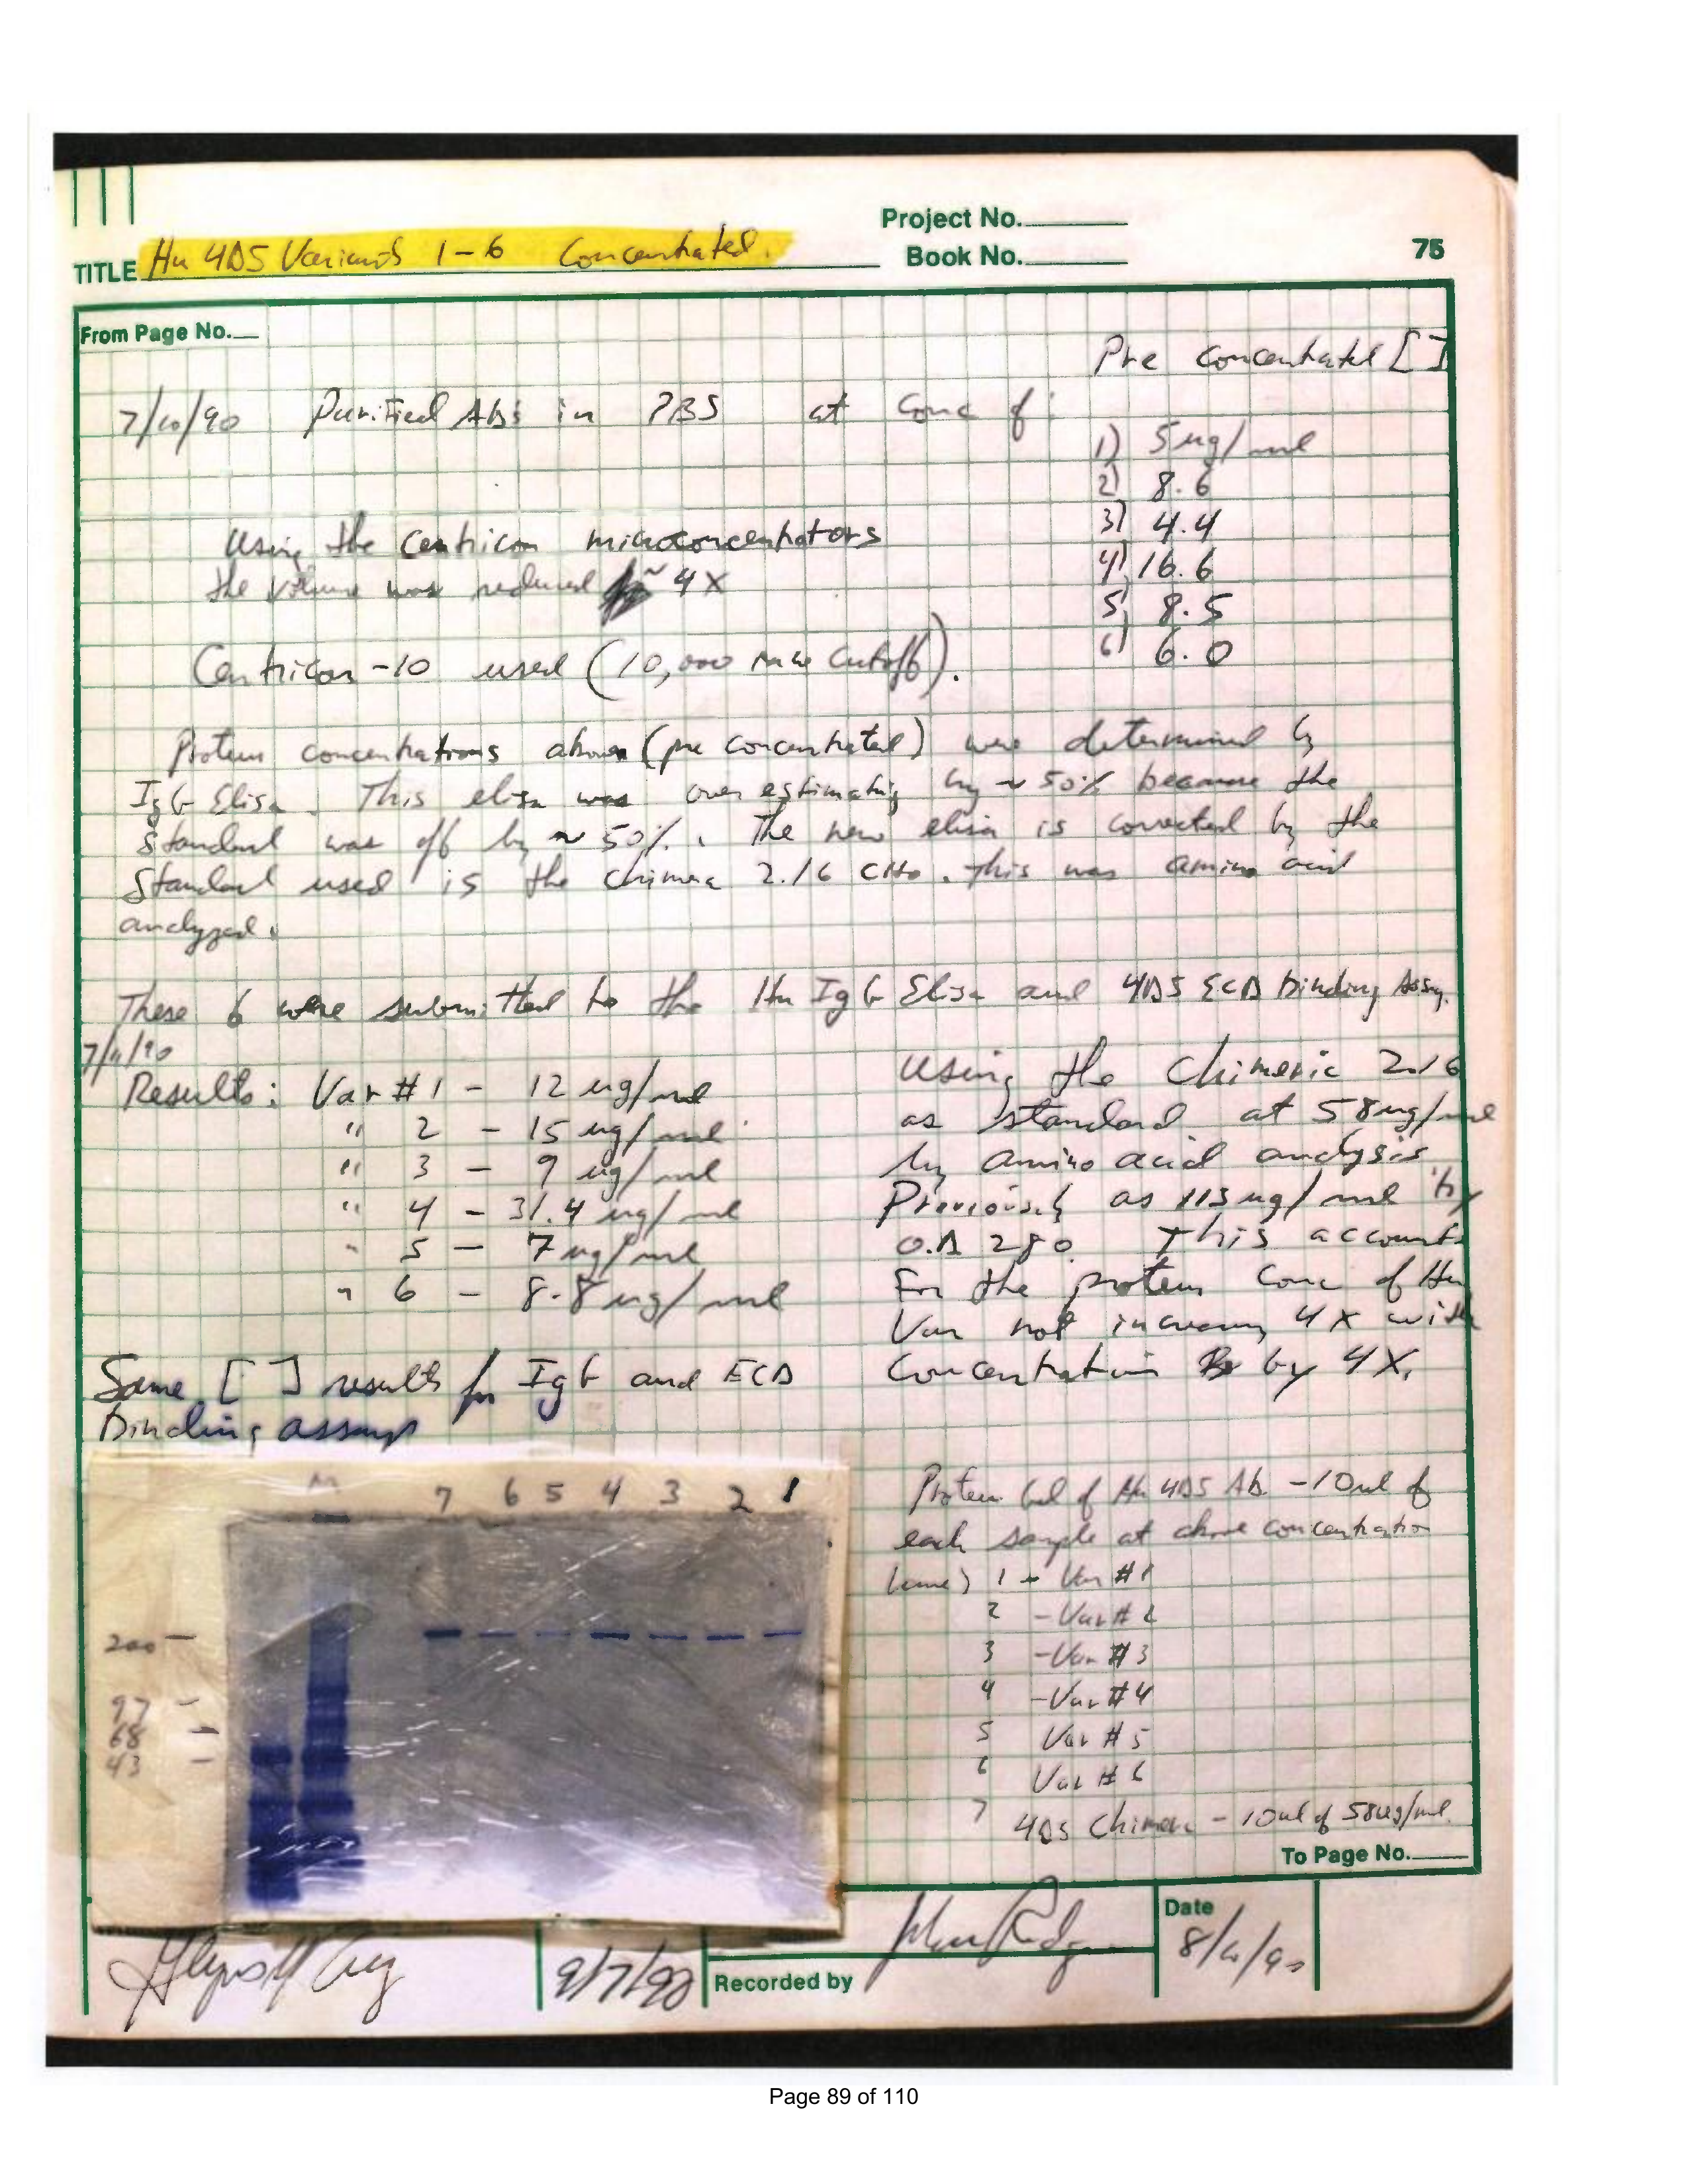 Project No.
TITLE Hu 4D5 Variants 1-6 Concentrated.
Book No.
75
From Page No.
Pre concentrated [ ]
7/10/90 Purified Abs in PBS at Conc of:
1) 5 ug/ml
2) 8.6
3) 4.4
4) 16.6
5) 8.5
6) 6.0
Using the Centricon microconcentrators
the volume was reduced ~ 4X
Centricon-10 used (10,000 MW Cutoff).
Protein concentrations above (pre concentrated) were determined by
IgG Elisa. This elisa was over estimating by ~ 50% because the
standard was off by ~ 50%. The new elisa is corrected by the
standard used is the chimera 2.16 CHO. This was amino acid
analyzed.
These 6 were submitted to the Hu IgG Elisa and 4D5 ECD binding Assay.
7/11/90
Results: Var #1 - 12 ug/ml
" 2 - 15 ug/ml
" 3 - 9 ug/ml
" 4 - 31.4 ug/ml
" 5 - 7 ug/ml
" 6 - 8.8 ug/ml
Using the Chimeric 2.16
as standard at 58 ug/ml
by amino acid analysis
Previously as 113 ug/ml by
O.D 280. This accounts
For the protein conc of Hu
Var not increasing 4X with
Concentration by 4X.
Same [ ] results for IgG and ECD
Binding assays
M 7 6 5 4 3 2 1
200 -
97 -
68 -
43 -
Protein Gel of Hu 4D5 Ab. - 10ul of
each sample at above concentration
Lane) 1 - Var #1
2 - Var # 2
3 - Var #3
4 - Var #4
5 Var #5
6 Var # 6
7 4D5 Chimera - 10ul of 58ug/ml.
To Page No.
9/7/90
Recorded by
Date
Page 89 of 110